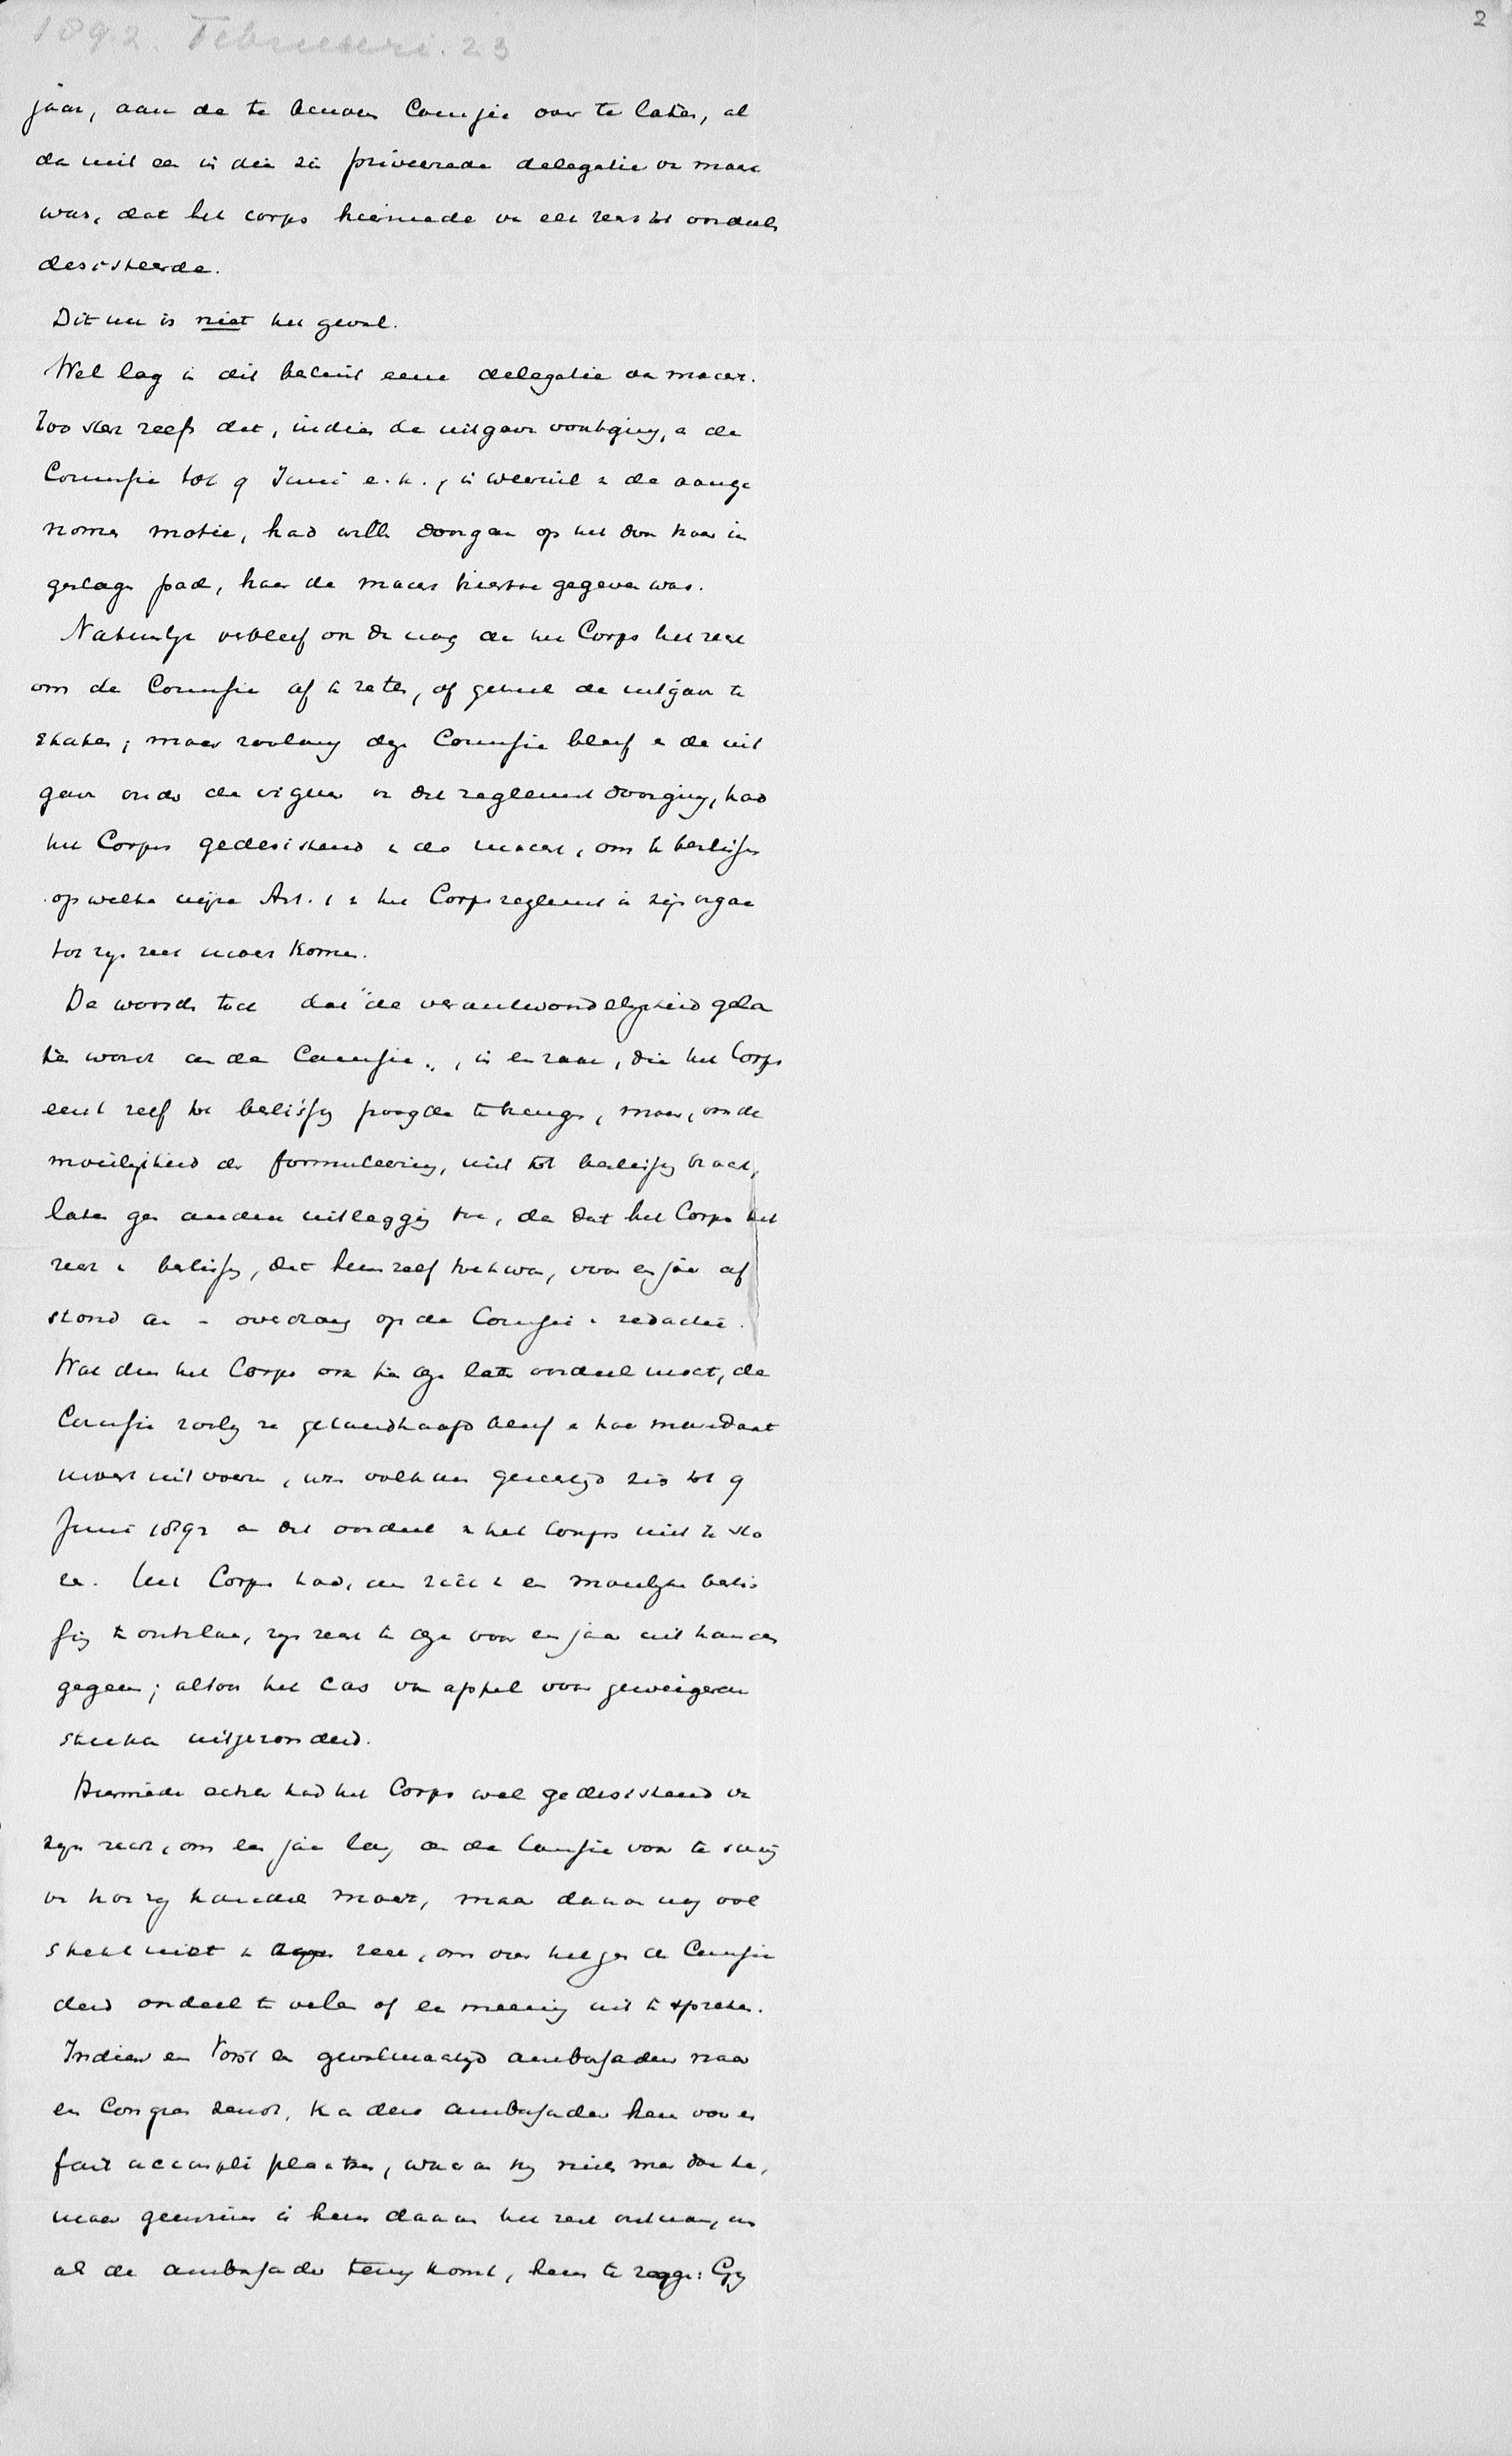 1892. Februari. 23
2
jaar, aan de te benoemen Commissie over te laten, al
da niet een in die zin priveerende delegatie van macht
was, dat het corps hiermede van elk recht tot oordeelen
desisteerde.
Dit nu is niet het geval.
Wel lag in dit besluit eene delegatie van macht.
Zoo sterk zelfs dat, indien de uitgave voortging, en de
Commissie tot 9 Juni e.k., in weerwil van de aange
nomen motie, had willen doorgaan op het door haar in
geslagen pad, haar de macht hiertoe gegeven was.
Natuurlijk verbleef ook dan nog aan het Corps het recht
om de Commissie af te zetten, of geheel de uitgave te
staken; maar zoolang deze Commissie bleef en de uit
gave onder de vigueur van dit reglement doorging, had
het Corps gedesisteerd van de macht, om te beslissen
op welke wijze Art. 1 van het Corpsreglement in zijn orgaan
tot zijn recht moest komen.
De woorden toch dat "de verantwoordelijkheid gela
ten wordt aan de Commissie", in een zaak, die het Corps
eerst zelf tot beslissing poogde te brengen, maar, om de
moeilijkheid der formuleering, niet tot beslissing bracht,
laten geen andere uitlegging toe, dan dat het Corps het
recht van beslissing, dat hem zelf toekwam, voor een jaar af
stond aan - overdroeg op de Commissie van redactie.
Wat dus het Corps ook te dezen later oordeelen mocht, de
Commissie zoolang ze gehandhaafd bleef en haar mandaat
moest uitvoeren, was volkomen gerechtigd zich tot 9
Juni 1892 aan dit oordeel van het Corps niet te sto
ren. Het Corps had, om zich van een moeilijke beslis
sing te ontslaan, zijn recht te dezen voor een jaar uit handen
gegeven; altoos het cas van appel voor geweigerde
stukken uitgezonderd.
Hiermede echter had het Corps wel gedesisteerd van
zijn recht, om een jaar lang aan de Commissie voor te schrijven
hoe zij handelen moest, maar daarom nog vol
strekt niet van recht, om over hetgeen de Commissie
deed oordeel te vellen of een meening uit te spreken.
Indien een Vorst een gevolmachtigd ambassadeur naar
een Congres zendt, kan deze ambassadeur hem voor een
fait accompli plaatsen, waaraan hij niets meer doen kan,
maar geenszins is hem daarom het recht ontnomen, om
als de ambassadeur terug komt, hem te zeggen: Gij